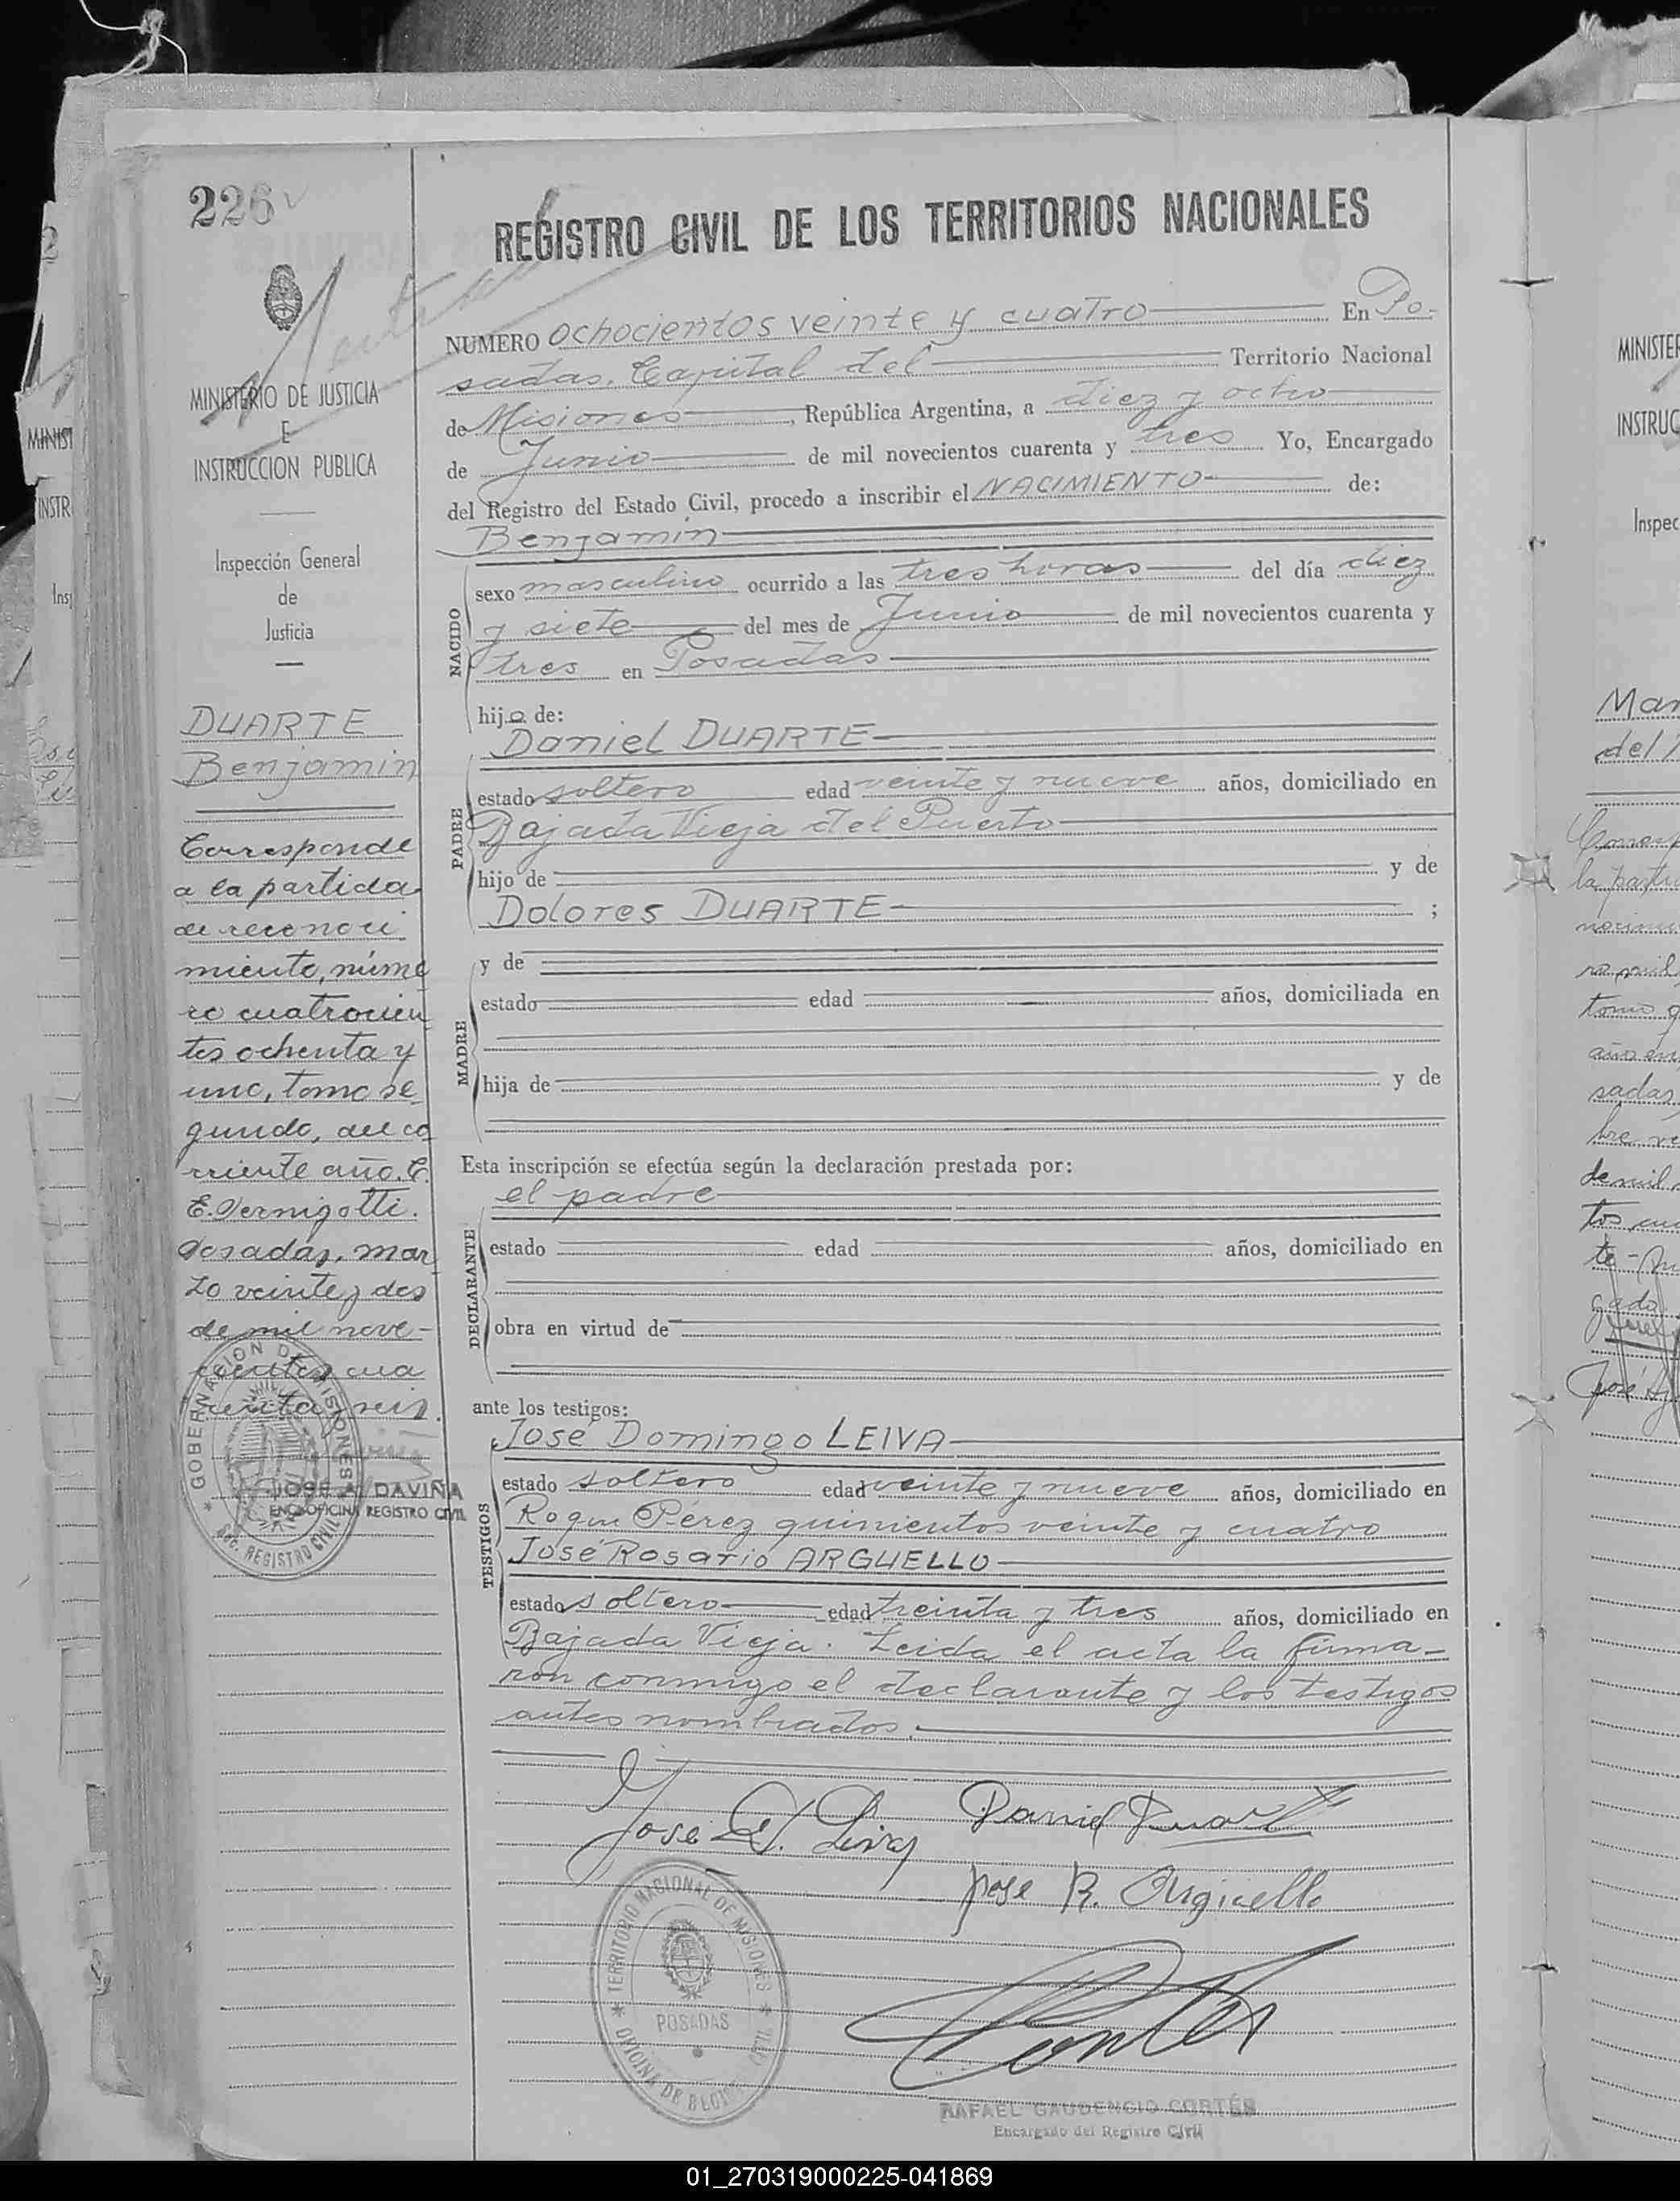 226
REGISTRO CIVIL DE LOS TERRITORIOS NACIONALES
MINISTERIO DE JUSTICIA
E
INSTRUCCION PUBLICA
Inspección General
de
Justicia
DUARTE
Benjamin
Corresponde
a la partida
de reconoci
miento, núme
ro cuatrocien
tos ochenta y
uno, tomo se
gundo, del co
rriente año. C.
E. Vernigotti.
Posadas, mar
zo veinte y dos
de mil nove-
cientos cua
renta y seis.
GOBERNACION DE MISIONES
REGISTRO CIVIL
JOSE A. DAVIÑA
ENC. OFICINA REGISTRO CIVIL
NUMERO ochocientos veinte y cuatro En Po-
sadas, Capital del Territorio Nacional
de Misiones, República Argentina, a diez y ocho
de Junio de mil novecientos cuarenta y tres Yo, Encargado
del Registro del Estado Civil, procedo a inscribir el NACIMIENTO de:
Benjamin
NACIDO
sexo masculino ocurrido a las tres horas del día diez
y siete del mes de Junio de mil novecientos cuarenta y
tres en Posadas
hijo de:
Daniel DUARTE
PADRE
estado soltero edad veinte y nueve años, domiciliado en
Bajada Vieja del Puerto
hijo de y de
Dolores DUARTE ;
y de
MADRE
estado edad años, domiciliada en
hija de y de
Esta inscripción se efectúa según la declaración prestada por:
el padre
DECLARANTE
estado edad años, domiciliado en
obra en virtud de
ante los testigos:
José Domingo LEIVA
TESTIGOS
estado soltero edad veinte y nueve años, domiciliado en
Roque Pérez quinientos veinte y cuatro
José Rosario ARGUELLO
estado soltero edad treinta y tres años, domiciliado en
Bajada Vieja. Leida el acta la firma-
ron conmigo el declarante y los testigos
antes nombrados.
Jose D. Leiva Daniel Duarte
Jose R. Arguello
TERRITORIO NACIONAL DE MISIONES
POSADAS
Cortés
RAFAEL GAUDENCIO CORTÉS
Encargado del Registro Civil
MINISTER
INSTRUC
Inspec
01_270319000225-041869